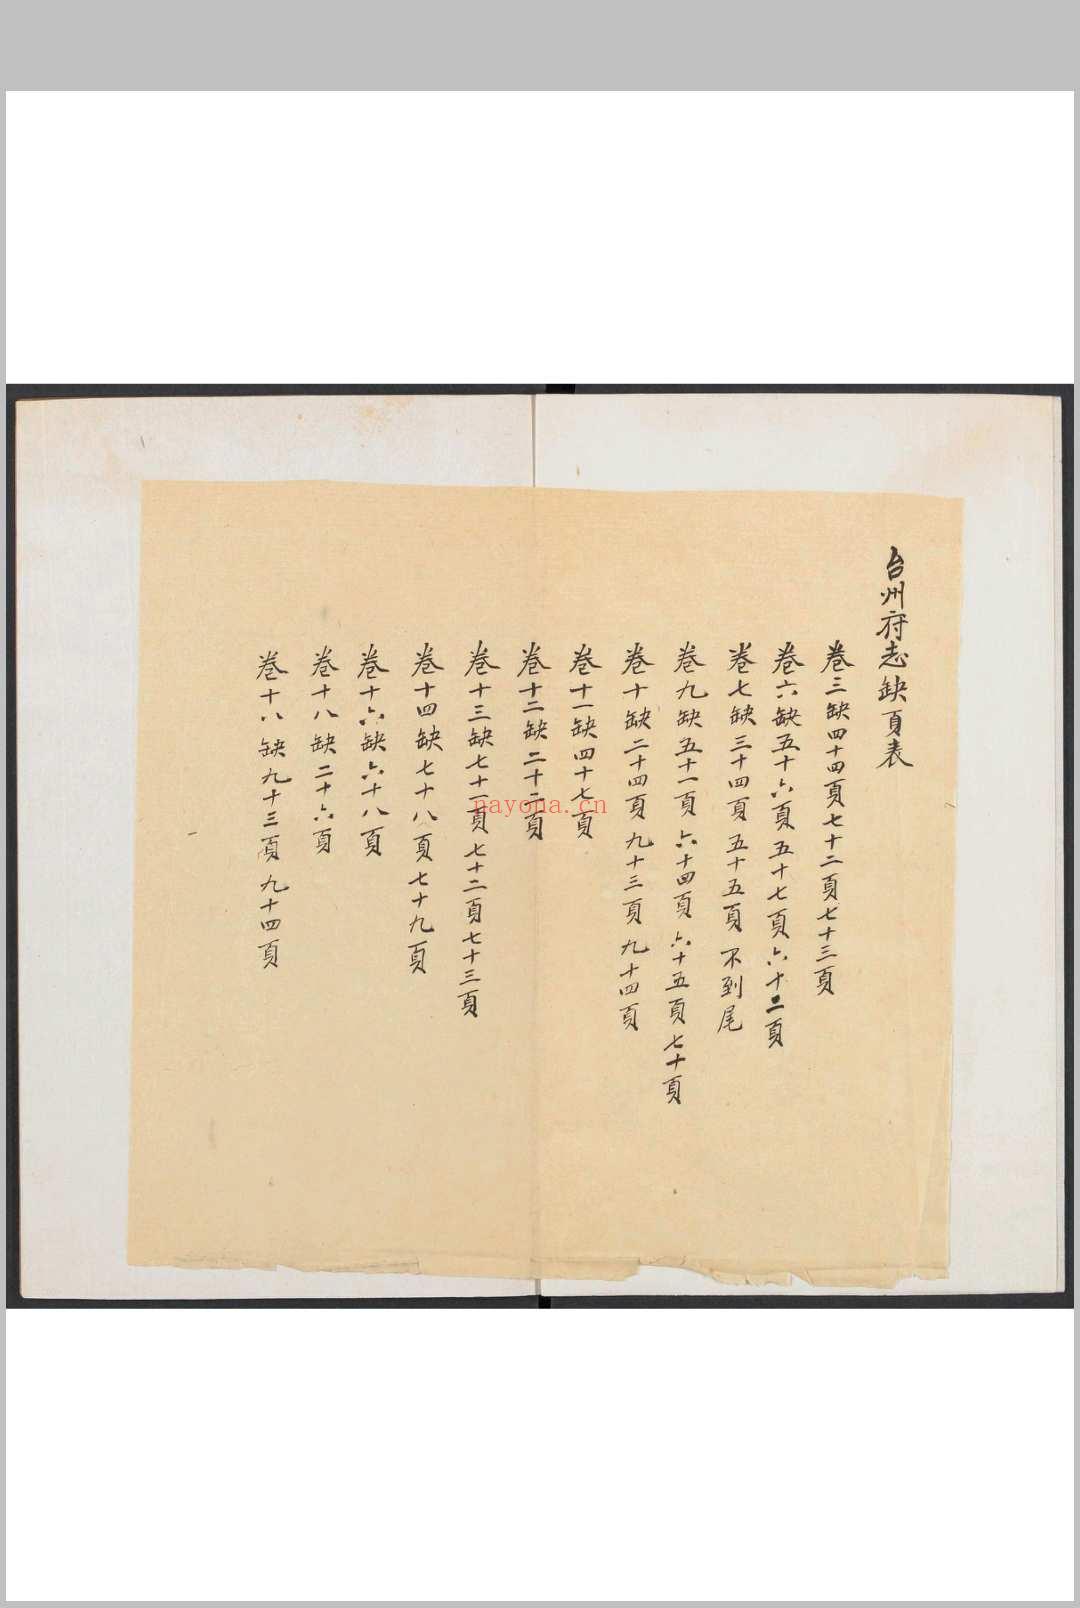 台州府志缺頁表
卷三缺四十四頁七十二頁七十三頁
卷六缺五十六頁五十七頁六十二頁
卷七缺三十四頁五十五頁不到尾
卷九缺五十一頁六十四頁六十五頁七十頁
卷十缺二十四頁九十三頁九十四頁
卷十一缺四十七頁
卷十二缺二十二頁
卷十三缺七十一頁七十二頁七十三頁
卷十四缺七十八頁七十九頁
卷十六缺六十八頁
卷十八缺二十六頁
卷十八缺九十三頁九十四頁
nayona.cn